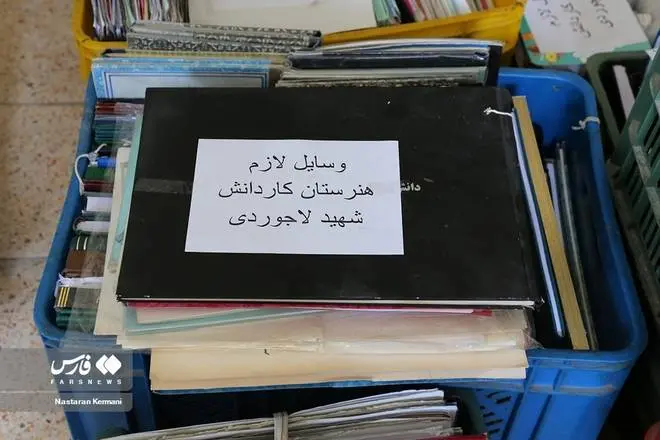 وسایل لازم
هنرستان کاردانش
شهید لاجوردی
دانش
فارس
FARSNEWS
Nastaran Kermani